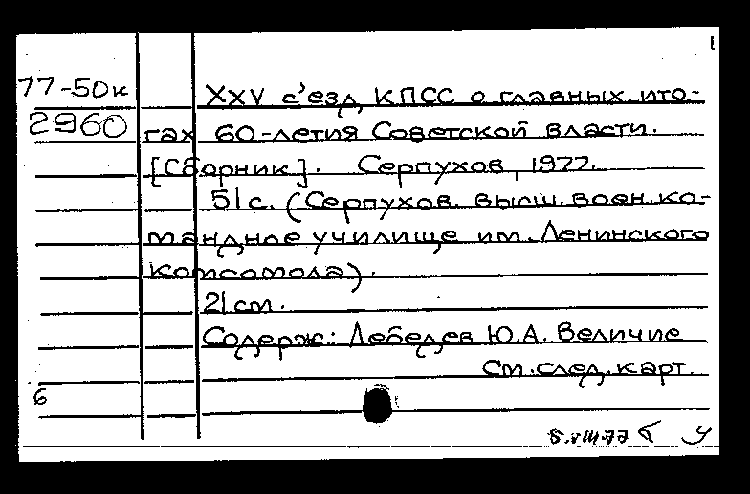 77-50к XXV с'езд КПСС о главных ито-
2960 гах 60-летия Советской власти.
[Сборник]. Серпухов, 1977.
51 с. (Серпухов. высш. воен. ко-
мандное училище им. Ленинского
комсомола).
21 см.
Содерж: Лебедев Ю.А. Величие
См. след. карт.
6
8.VIII-77 б У